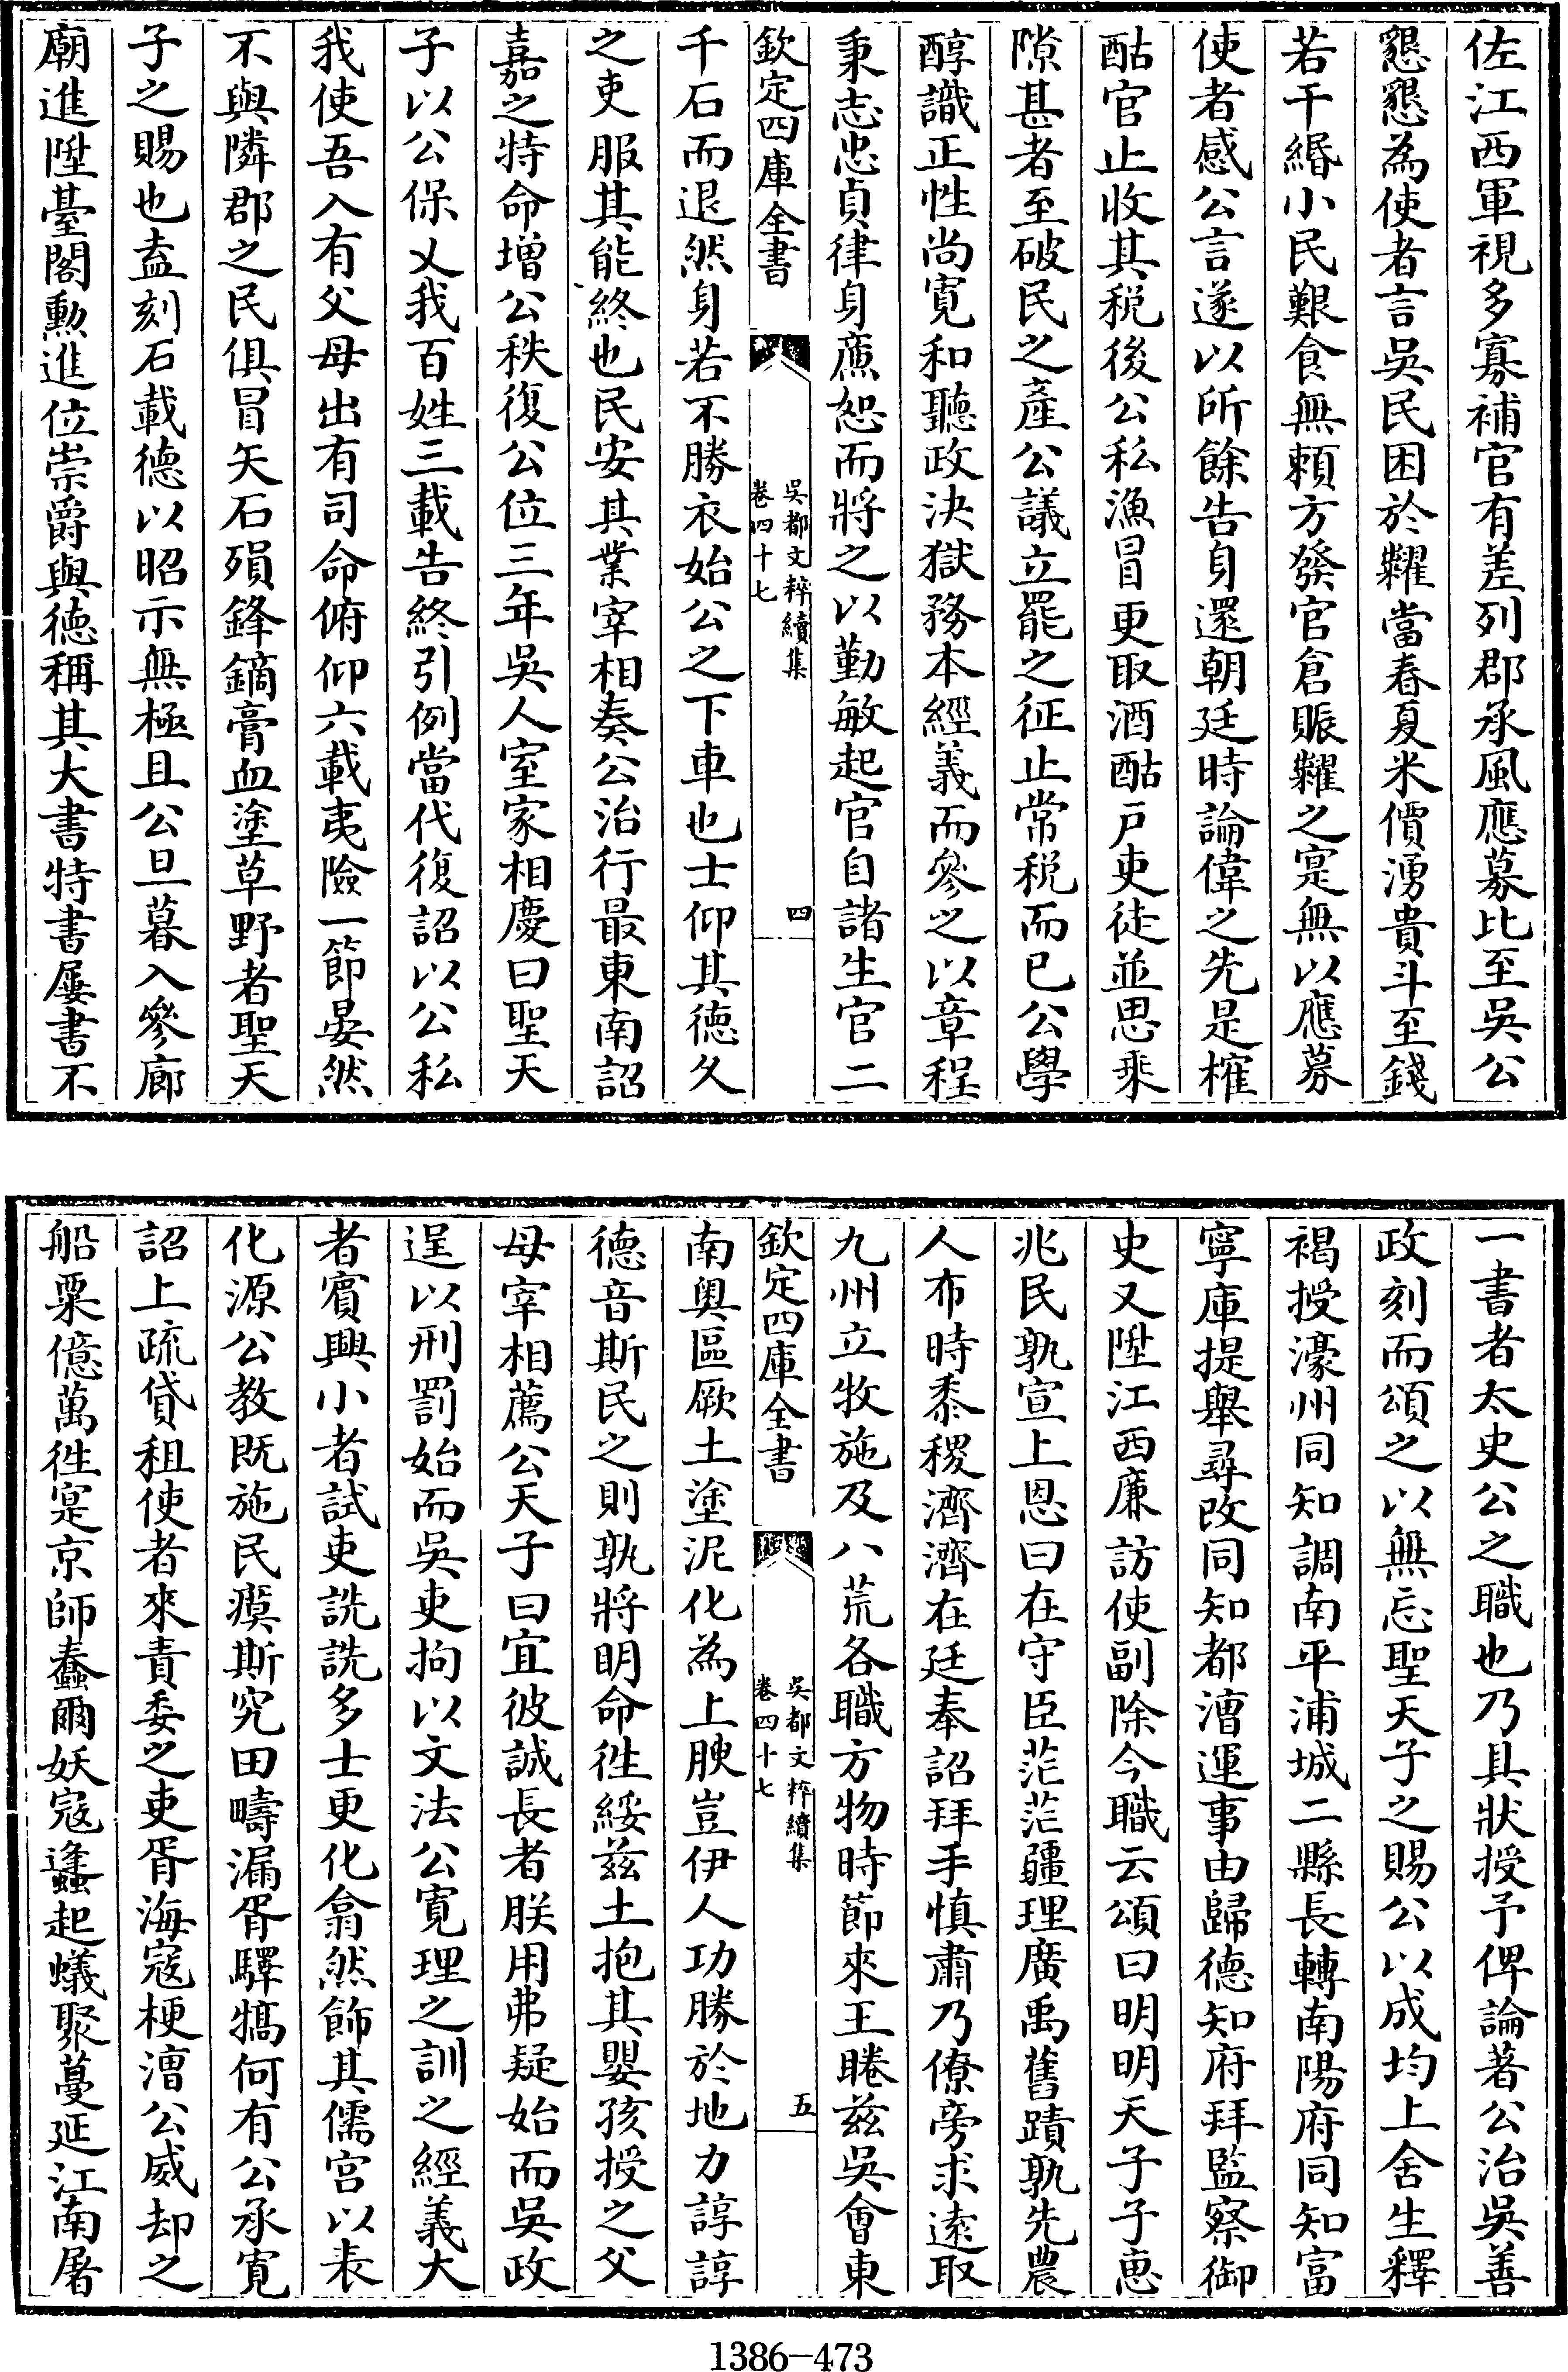 佐江西軍視多寡補官有差列郡承風應募比至吳公
懇懇為使者言吳民困於糶當春夏米價湧貴斗至錢
若干緡小民艱食無賴方發官倉賑糶之寔無以應募
使者感公言遂以所餘告身還朝廷時論偉之先是榷
酤官止收其税後公私漁冒更取酒酤戶吏徒並思乘
隙甚者至破民之產公議立罷之征止常税而已公學
醇識正性尚寛和聽政決獄務本經義而參之以章程
秉志忠貞律身㢘恕而將之以勤敏起官自諸生官二
欽定四庫全書
吳都文粹續集
卷四十七
四
千石而退然身若不勝衣始公之下車也士仰其德久
之吏服其能終也民安其業宰相奏公治行最東南詔
嘉之特命增公秩復公位三年吳人室家相慶曰聖天
子以公保乂我百姓三載告終引例當代復詔以公私
我使吾入有父母出有司命俯仰六載夷險一節晏然
不與隣郡之民俱冒矢石殞鋒鏑膏血塗草野者聖天
子之賜也盍刻石載德以昭示無極且公旦暮入參廊
廟進陞臺閣勲進位崇爵與徳稱其大書特書屢書不
一書者太史公之職也乃具狀授予俾論著公治吳善
政刻而頌之以無忘聖天子之賜公以成均上舍生釋
褐授濠州同知調南平浦城二縣長轉南陽府同知富
寧庫提舉尋改同知都漕運事由歸德知府拜監察御
史又陞江西廉訪使副除今職云頌曰明明天子子惠
兆民孰宣上恩曰在守臣茫茫疆理廣禹舊蹟孰先農
人布時黍稷濟濟在廷奉詔拜手慎肅乃僚旁求逺取
九州立牧施及八荒各職方物時節來王睠兹吳會東
欽定四庫全書
吳都文粹續集
卷四十七
五
南奥區厥土塗泥化為上腴豈伊人功勝於地力諄諄
德音斯民之則孰將明命徃綏兹土抱其嬰孩授之父
母宰相薦公天子曰宜彼誠長者朕用弗疑始而吳政
逞以刑罰始而吳吏拘以文法公寛理之訓之經義大
者賓興小者試吏詵詵多士更化翕然飾其儒宫以表
化源公教既施民瘼斯究田疇漏胥驛犒何有公承寛
詔上疏貸租使者來責委之吏胥海寇梗漕公威却之
船粟億萬徃寔京師蠢爾妖寇蠭起蟻聚蔓延江南屠
1386-473